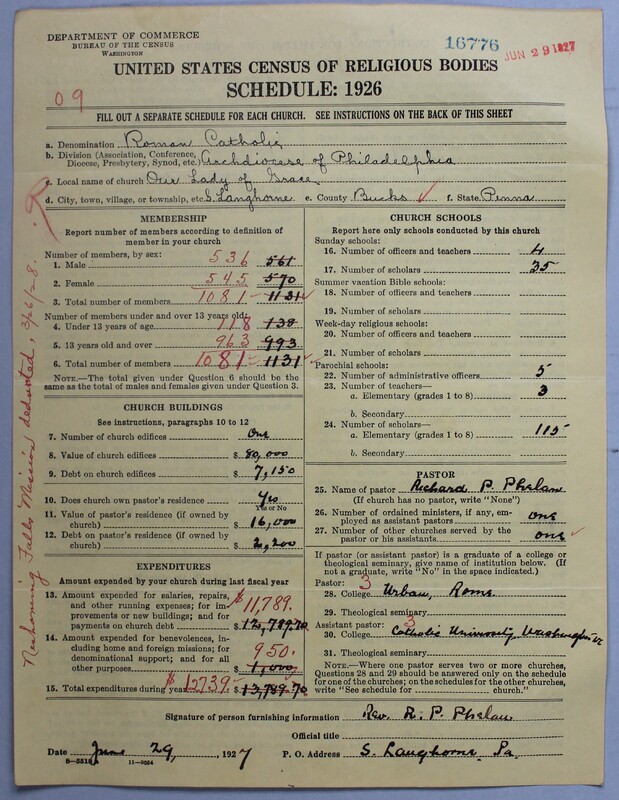 DEPARTMENT OF COMMERCE
BUREAU OF THE CENSUS
WASHINGTON
16776
JUN 29 1927
UNITED STATES CENSUS OF RELIGIOUS BODIES
SCHEDULE: 1926
09
FILL OUT A SEPARATE SCHEDULE FOR EACH CHURCH. SEE INSTRUCTIONS ON THE BACK OF THIS SHEET
a. Denomination Roman Catholic
b. Division (Association, Conference, Diocese, Presbytery, Synod, etc.) Archdiocese of Philadelphia
c. Local name of church Our Lady of Grace
d. City, town, village, or township, etc. S. Langhorne e. County Bucks ✓ f. State Penna
MEMBERSHIP
Report number of members according to definition of member in your church
Number of members, by sex:
1. Male 536 561
2. Female 545 570
3. Total number of members 1081 1131 ✓
Number of members under and over 13 years old:
4. Under 13 years of age 118 138
5. 13 years old and over 963 993
6. Total number of members 1081 1131 ✓
NOTE.—The total given under Question 6 should be the same as the total of males and females given under Question 3.
CHURCH BUILDINGS
See instructions, paragraphs 10 to 12
7. Number of church edifices One
8. Value of church edifices $ 80,000
9. Debt on church edifices $ 7,150
10. Does church own pastor's residence? Yes
Yes or No
11. Value of pastor's residence (if owned by church) $ 16,000
12. Debt on pastor's residence (if owned by church) $ 2,200
EXPENDITURES
Amount expended by your church during last fiscal year
13. Amount expended for salaries, repairs, and other running expenses; for improvements or new buildings; and for payments on church debt $11,789. $ 12,789.70
14. Amount expended for benevolences, including home and foreign missions; for denominational support; and for all other purposes 950. $ 1,000
15. Total expenditures during year $12739. $ 13,789.70
Neshaminy Falls Mission deducted, 3/26/28.
CHURCH SCHOOLS
Report here only schools conducted by this church
Sunday schools:
16. Number of officers and teachers 4
17. Number of scholars 35
Summer vacation Bible schools:
18. Number of officers and teachers
19. Number of scholars
Week-day religious schools:
20. Number of officers and teachers
21. Number of scholars
Parochial schools:
22. Number of administrative officers 5
23. Number of teachers—
a. Elementary (grades 1 to 8) 3
b. Secondary
24. Number of scholars—
a. Elementary (grades 1 to 8) 115
b. Secondary
PASTOR
25. Name of pastor Richard P. Phelan
(If church has no pastor, write "None")
26. Number of ordained ministers, if any, employed as assistant pastors one
27. Number of other churches served by the pastor or his assistants one ✓
If pastor (or assistant pastor) is a graduate of a college or theological seminary, give name of institution below. (If not a graduate, write "No" in the space indicated.)
Pastor: 3
28. College Urban, Rome
29. Theological seminary
Assistant pastor: 3
30. College Catholic University, Washington
31. Theological seminary
NOTE.—Where one pastor serves two or more churches, Questions 28 and 29 should be answered only on the schedule for one of the churches; on the schedules for the other churches, write "See schedule for church."
Signature of person furnishing information Rev. R. P. Phelan
Official title
Date June 29, 1927 P. O. Address S. Langhorne Pa.
11—9064